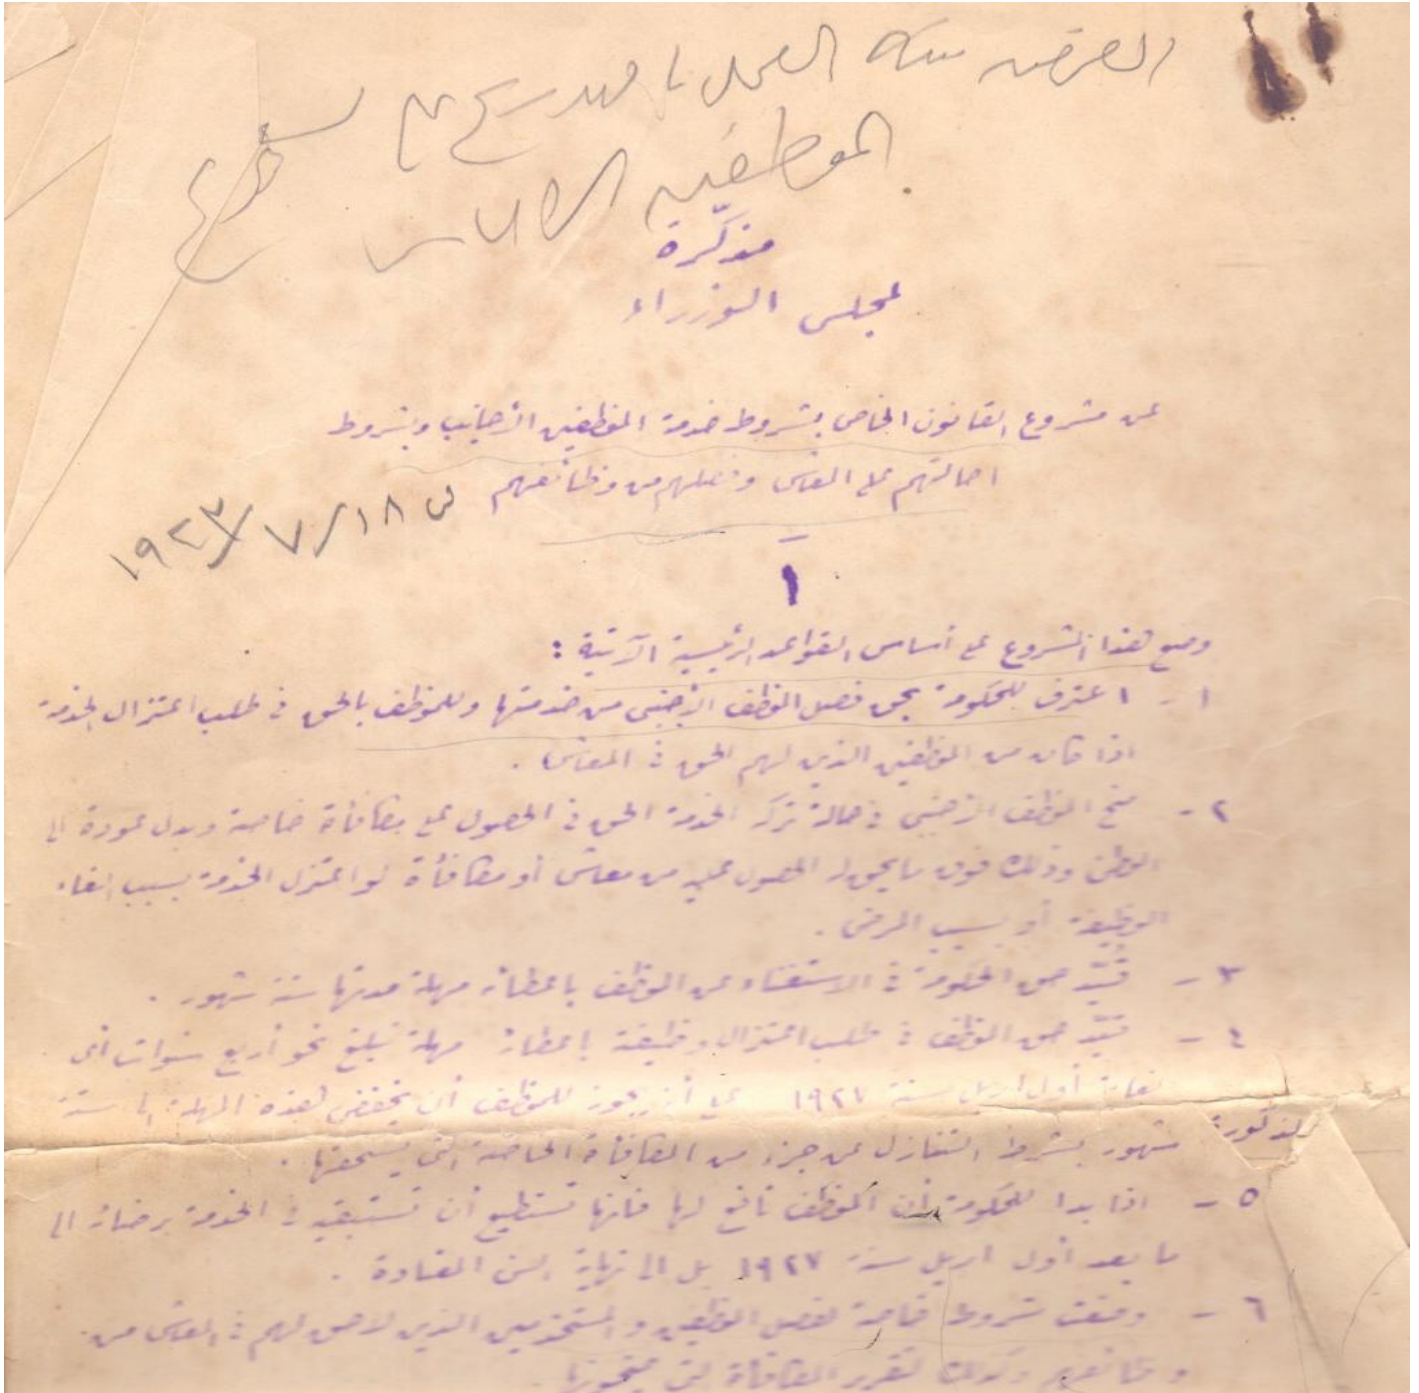 الموظفين
مذكرة
لمجلس الوزراء
عن مشروع القانون الخاص بشروط خدمة الموظفين الأجانب وبشروط
احالتهم على المعاش وفصلهم من وظائفهم في ١٨/٧/١٩٢٣
١
وضع هذا المشروع على أساس القواعد الرئيسية الآتية :
١ - اعترف للحكومة بحق فصل الموظف الأجنبى من خدمتها وللموظف بالحق في طلب اعتزال الخدمة
اذا كان من الموظفين الذين لهم الحق في المعاش .
٢ - منح الموظف الأجنبى في حالة ترك الخدمة الحق في الحصول على مكافأة خاصة وبدل عودة الى
الوطن وذلك فوق ما يحق له الحصول عليه من معاش أو مكافأة لو اعتزل الخدمة بسبب الغاء
الوظيفة أو بسبب المرض .
٣ - قيّد حق الحكومة في الاستغناء عن الموظف باعطائه مهلة مدتها ستة شهور .
٤ - قيّد حق الموظف في طلب اعتزال وظيفته باعطائه مهلة تبلغ نحو أربع سنوات أى
لغاية أول ابريل سنة ١٩٢٧ على أنه يجوز للموظف أن يخفض هذه المهلة الى ستة
شهور بشرط التنازل عن جزء من المكافأة الخاصة التى يستحقها .
المذكورة
٥ - اذا بدا للحكومة أن الموظف نافع لها فانها تستطيع أن تستبقيه في الخدمة برضائه الى
ما بعد أول ابريل سنة ١٩٢٧ بل الى نهاية السن المعتادة .
٦ - وضعت شروط خاصة لفصل الموظفين والمستخدمين الذين لا حق لهم في المعاش من
وظائفهم وكذلك لتقرير المكافأة التى يمنحونها .